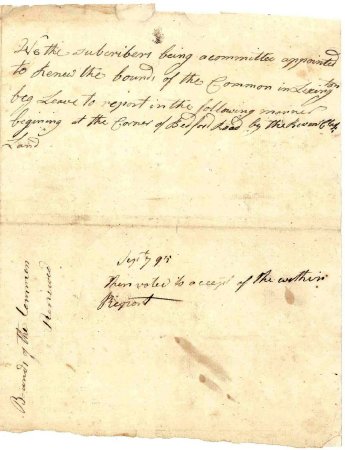 We the subcribers being a committee appointed
to Renew the bounds of the Common in Lexington
beg Leave to report in the following manner
begining at the Corner of Bedford Road by the
Land
Sept 7 95
then voted to accept of the within
Report
Bounds of the Common
Renewed